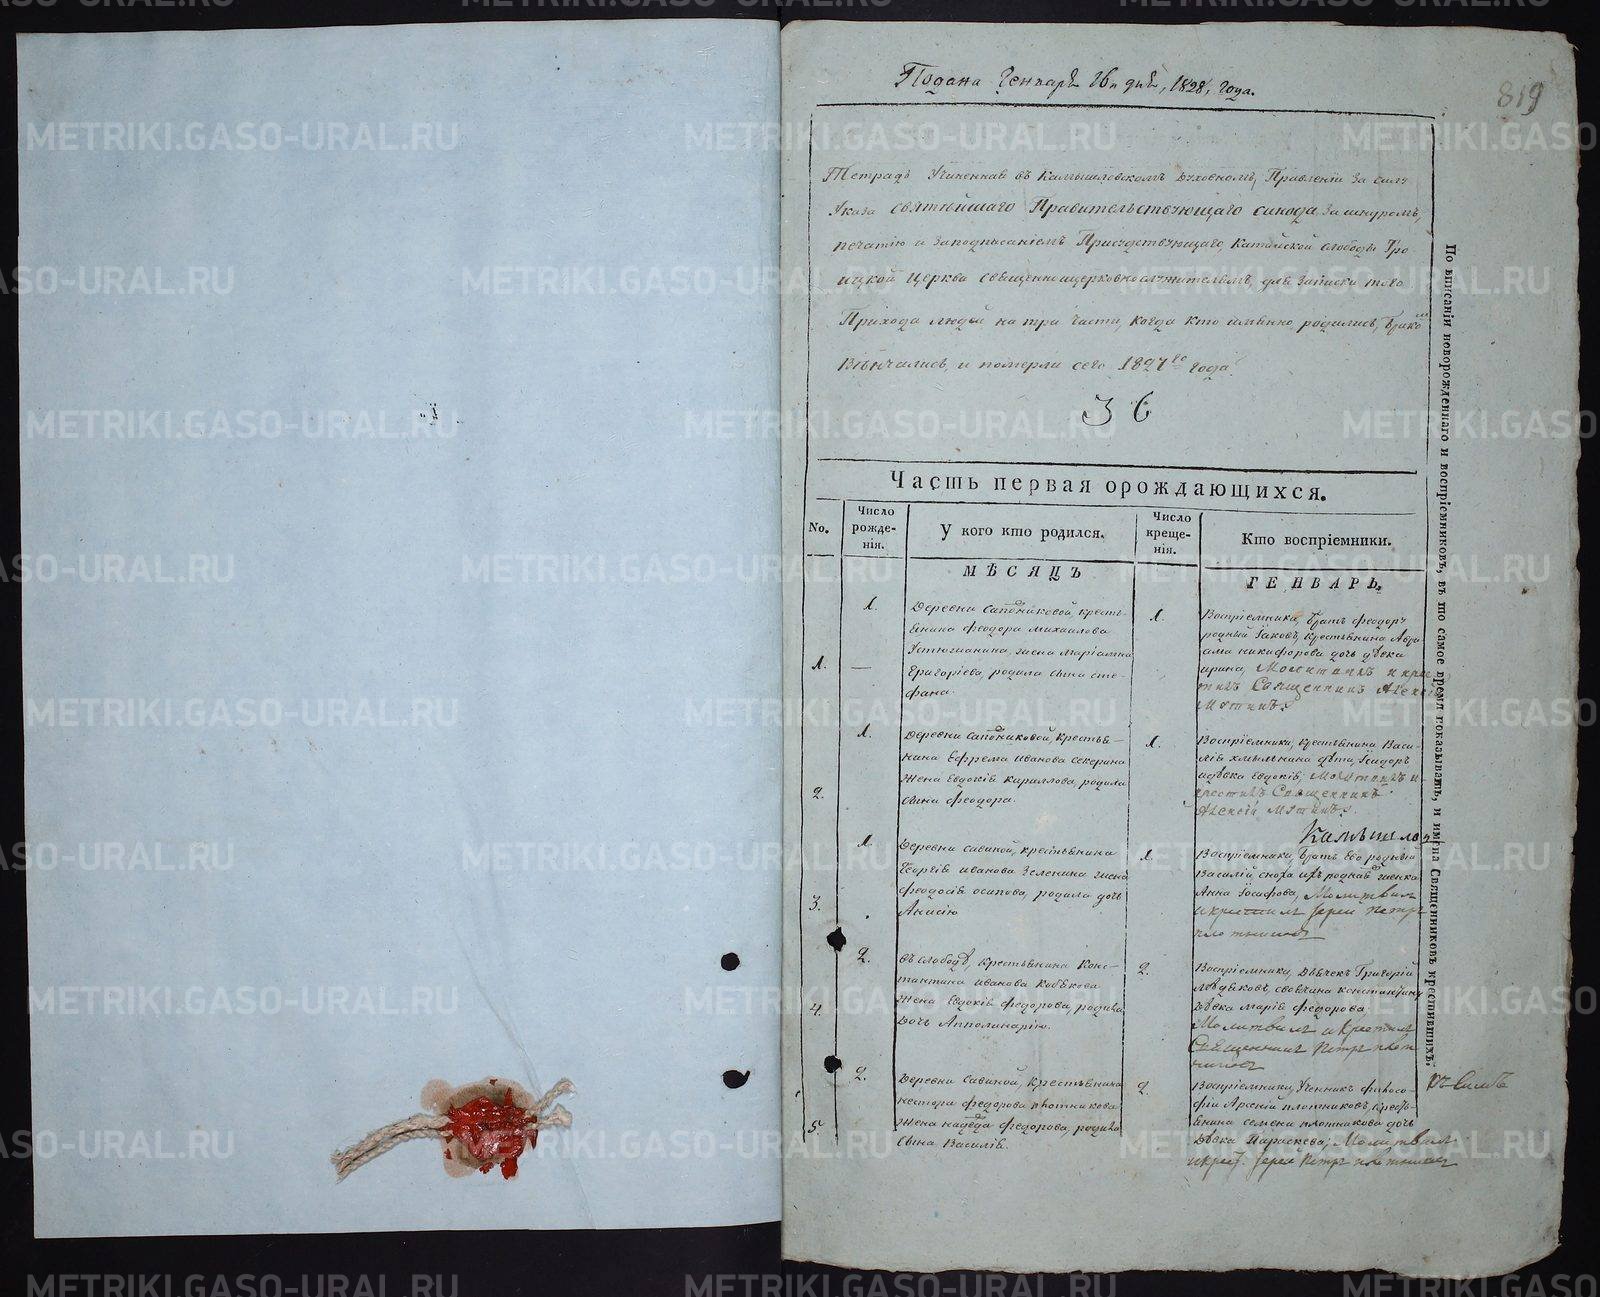 Подана Генваря 16 дня, 1828, года.
819
Тетрадь Учиненная въ Камышловскомъ Духовномъ, Правленіи За силу
Указа святѣйшаго Правительствующаго синода, За шнуромъ,
печатію и Заподписаніемъ Присудствующаго, Катайской слободы Тро
ицкой Церкви священноцерковнослужителямъ, для Записки того
Прихода людей на три части, когда кто имянно родились, бракомъ
Вѣнчались, и померли сего 1827го года.
36
Часть первая орождающихся.
No. Число рожде-нія. У кого кто родился. Число креще-нія. Кто воспріемники.
МѢСЯЦЪ ГЕНВАРЬ.
1. 1.
Деревни крестья-
янина Феодора Михаилова
Устюжанина, жена Маріамна
Григоріева, родила сына Сте-
фана.
1.
Воспріемники, братъ Феодору
родный Іаковъ, крестьянина Авра
ама Никифорова дочь дѣвка
Ирина, Молитвилъ и крес
тилъ Священникъ Алексѣй
2. 1.
Деревни крестья-
нина Ефрема Иванова Секерина
жена Евдокія Кириллова, родила
сына Феодора.
1.
Воспріемники, крестьянина Васи-
лія дѣти, Исидоръ
идѣвка Евдокія; и
крестилъ Священникъ
Алексій
Камышлов
3. 1.
Деревни Савиной, крестьянина
Георгія Иванова Зеленина жена
Феодосія Осипова, родила дочь
Анисію
1.
Воспріемники, братъ Его родный
Василій, сноха ихъ родная женка
Анна Іоасафова, Молитвилъ
и крестилъ Іерей Петръ
Плотниковъ
4. 2.
въ слободѣ, крестьянина Конс-
тантина Иванова Кобякова
жена Евдокія Федорова, родила
дочь Апполинарію.
2.
Воспріемники, Дьячекъ Григорій
дѣвка Марія Федорова
Молитвилъ и крестилъ
Священникъ Петръ Плот
никовъ
5. 2.
Деревни Савиной, крестьянина
Нестора Федорова Плотникова
жена Федорова, родила
сына Василія.
2.
Воспріемники, Ученикъ филосо-
фіи Арсеній Плотниковъ, крестья
янина Семена Плотникова дочь
дѣвка Параскева; Молитвилъ
и крест. Іерей Петръ Плотников
По вписаніи новорожденнаго и воспріемниковъ, въ то самое время показывать, и имена Священниковъ крестившихъ.
METRIKI.GASO-URAL.RU